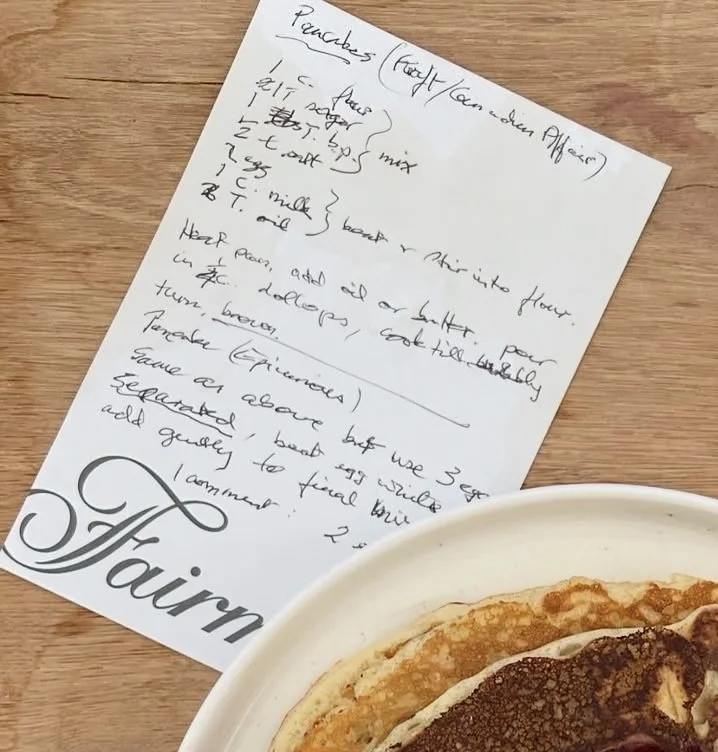 Pancakes (Kraft/Canadian Affair)
1 c. flour
1 T sugar
1 T. b.p. } mix
t. salt
egg
1 c. milk
2 T. oil } beat & stir into flour.
Heat pan, add oil or butter. pour
in c. dollops, cook till bubbly
turn, brown.
Pancakes (Epicurious)
Same as above but use 3 eggs
separated, beat egg whites
add gently to final mix
1 comment: 2
Fairm